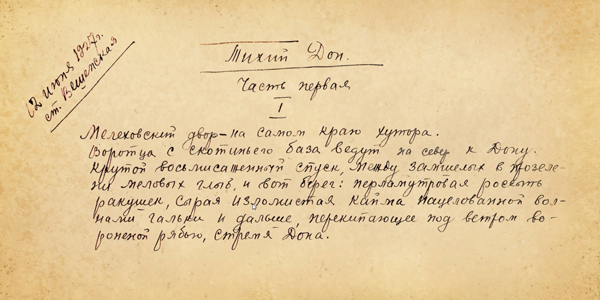 12 июня 1927г.
ст. Вешенская
Тихий Дон.
Часть первая
I
Мелеховский двор – на самом краю хутора.
Воротца с скотиньего база ведут на север к Дону.
Крутой восьмисаженный спуск, между замшелых в прозеле-
ни меловых глыб, и вот берег: перламутровая россыпь
ракушек, серая изломистая кайма нацелованной вол-
нами гальки и дальше, перекипающее под ветром во-
роненой рябью, стремя Дона.